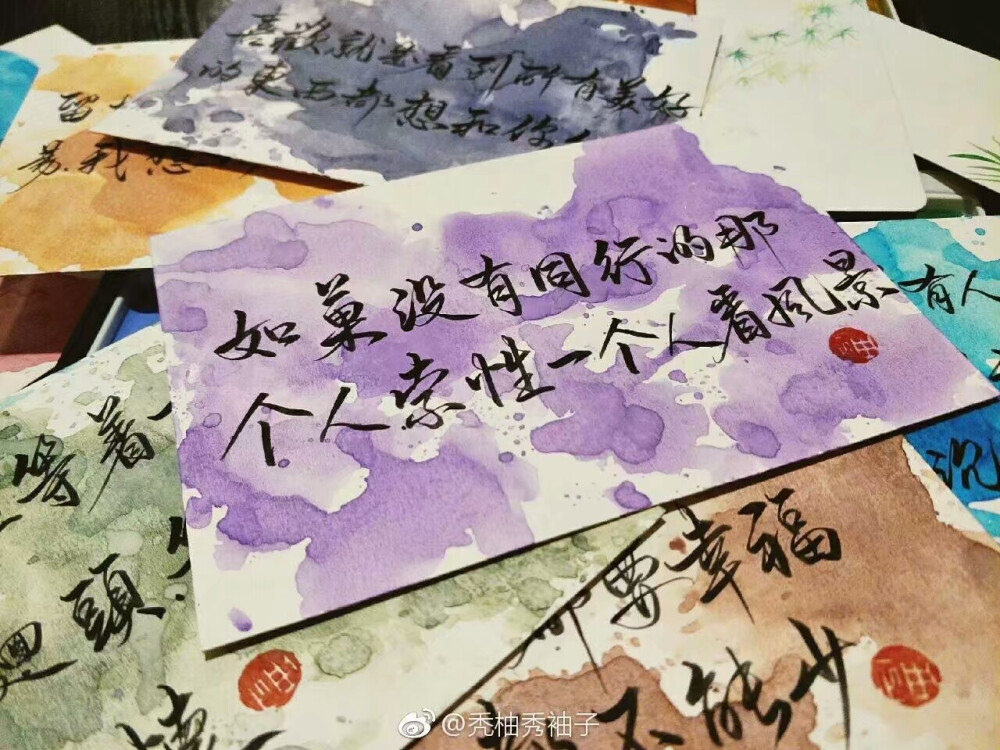 喜欢就是看到所有美好
的东西都想和你
留
我想
如菓没有同行的那
个人索性一个人看風景
有人
沉
着
頭
要幸福
不能少
@秃柚秀袖子